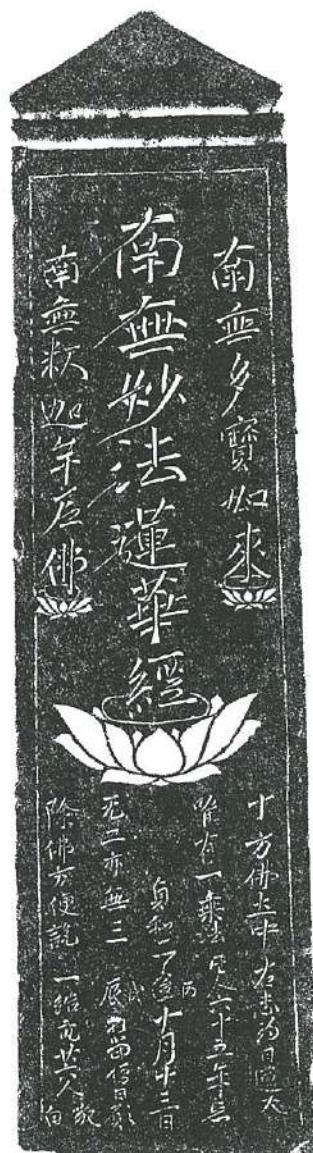 南無多寶如來
南無妙法蓮華經
南無釈迦牟尼佛
十方佛土中 右志者日蓮大
唯有一乗法 人六十五年忌
貞和二 丙戌 十月十三日
无二亦無三 相當
除佛方便説 一結衆廿八人敬白